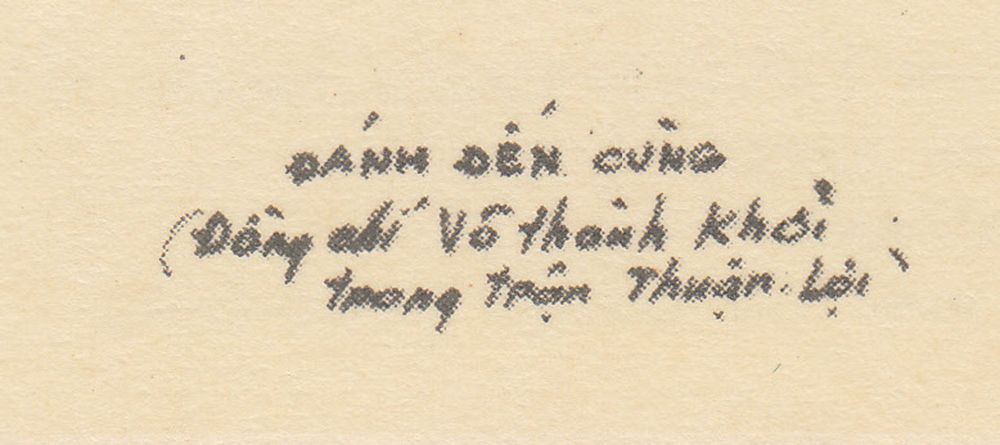 ĐÁNH ĐẾN CÙNG
(Đồng chí Võ thành Khởi
trong trận Thuận-Lợi)